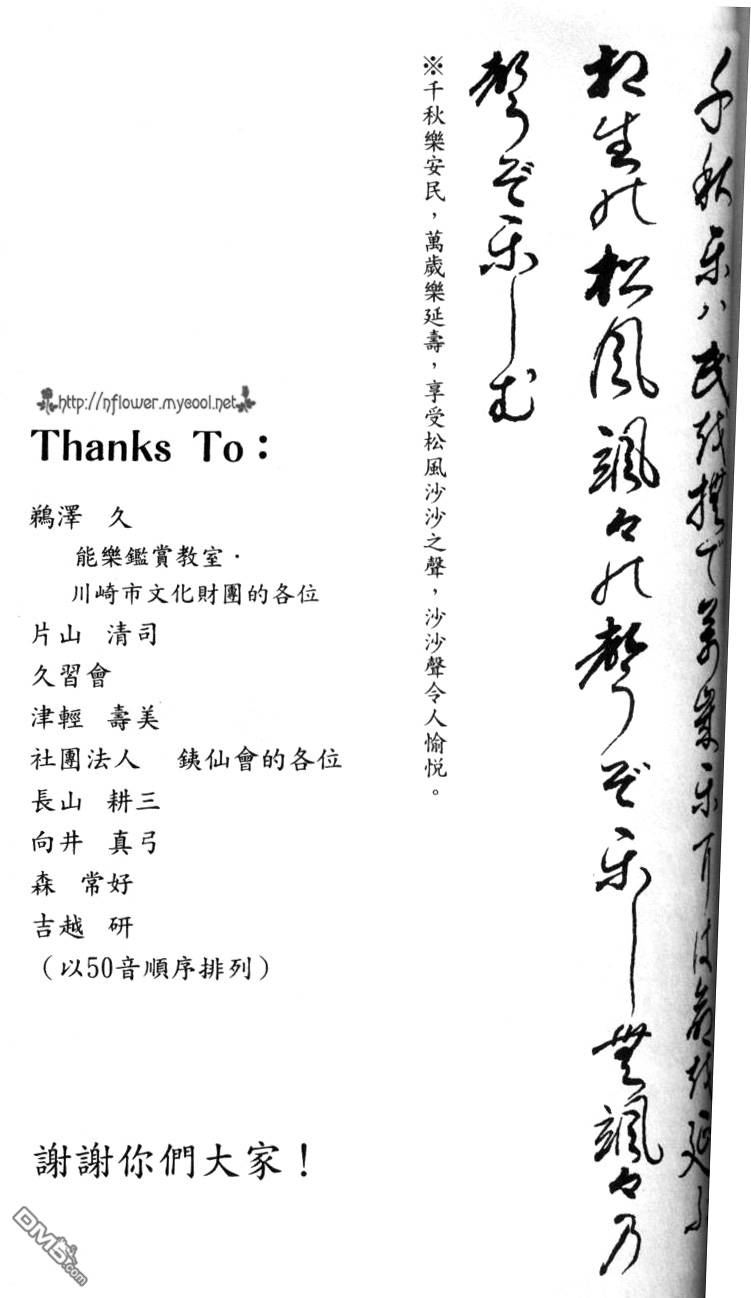 千秋楽ハ民越撫で萬歳楽耳は命越延ふ
相生能松風颯々能聲ぞ楽しむ颯々乃
聲ぞ楽しむ
※千秋樂安民，萬歲樂延壽，享受松風沙沙之聲，沙沙聲令人愉悅。
http://nflower.mycool.net
Thanks To：
鵜澤 久
能樂鑑賞教室．
川崎市文化財團的各位
片山 清司
久習會
津輕 壽美
社團法人 銕仙會的各位
長山 耕三
向井 真弓
森 常好
吉越 研
（以50音順序排列）
謝謝你們大家！
DM5.com